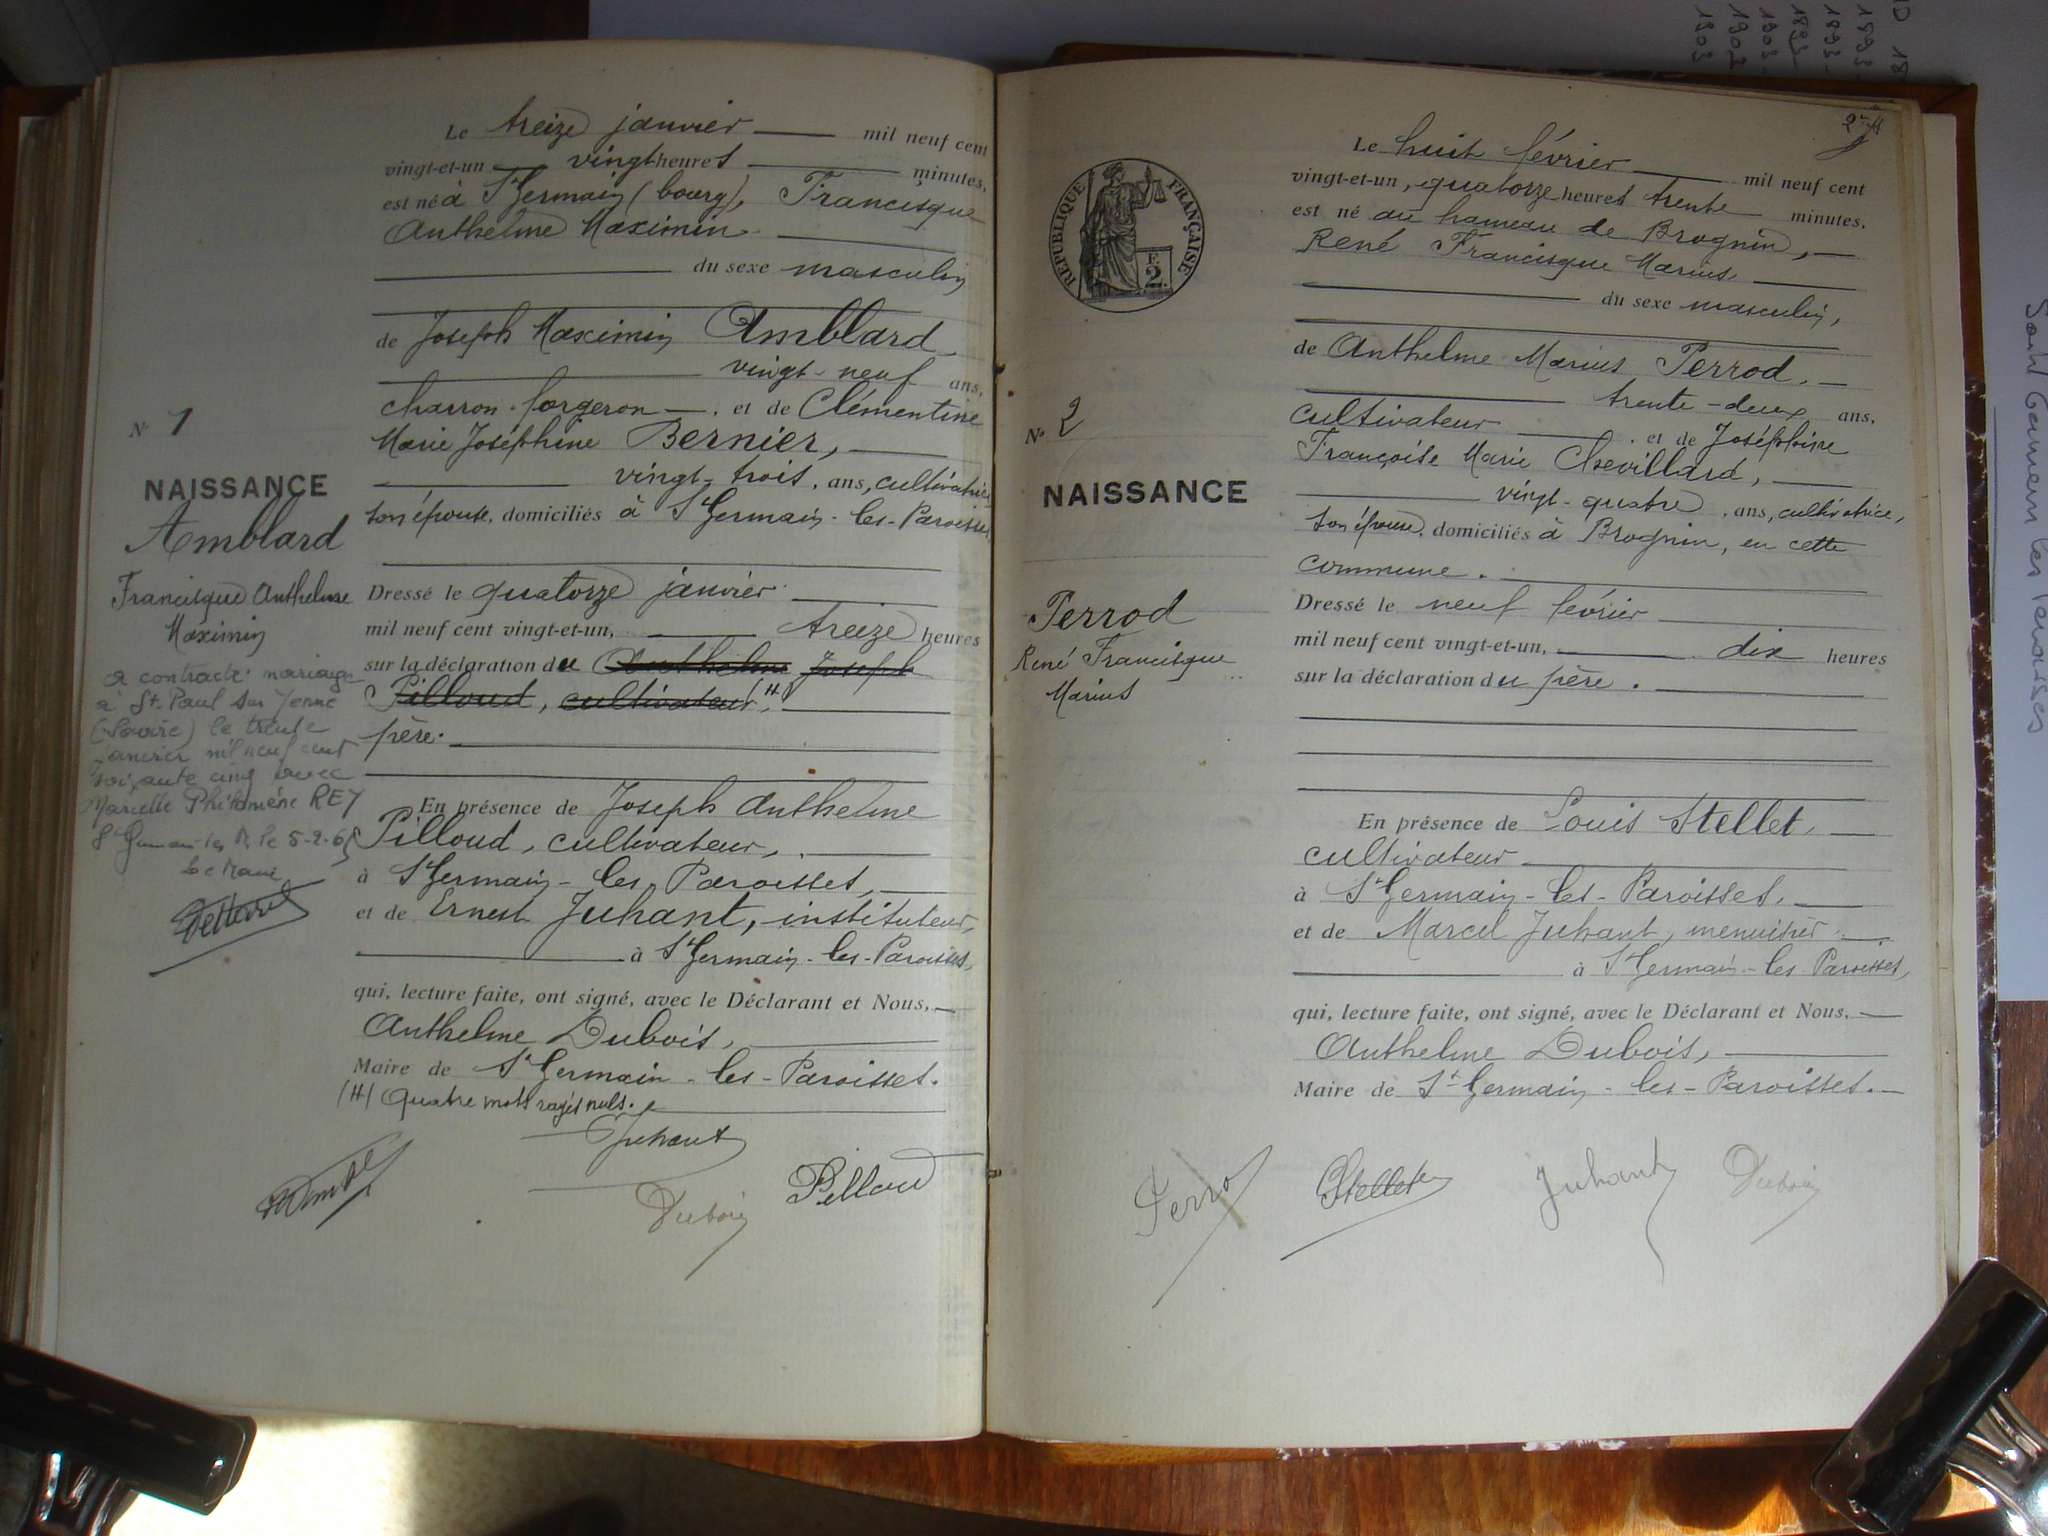 Le treize janvier mil neuf cent
vingt-et-un vingt heures minutes,
est né à St Germain (bourg), Francisque
Anthelme Maximin
du sexe masculin
de Joseph Maximin Amblard
vingt-neuf ans,
charron-forgeron, et de Clémentine
Marie Joséphine Bernier,
vingt-trois, ans, cultivatrice
son épouse, domiciliés à St Germain-les-Paroisses
Dressé le quatorze janvier
mil neuf cent vingt-et-un, treize heures
sur la déclaration du Anthelme Joseph
Pilloud, cultivateur, (H)
père.
En présence de Joseph Anthelme
Pilloud, cultivateur,
à St Germain-les-Paroisses,
et de Ernest Juhant, instituteur,
à St Germain-les-Paroisses,
qui, lecture faite, ont signé, avec le Déclarant et Nous,
Anthelme Dubois,
Maire de St Germain-les-Paroisses.
(H) Quatre mots rayés nuls.
Juhant
Dubois
Pilloud
N° 1
NAISSANCE
Amblard
Francisque Anthelme
Maximin
a contracté mariage
à St. Paul sur Yenne
(Savoie) le trente
janvier mil neuf cent
soixante cinq avec
Marcelle Philomène REY
St Germain les P. le 5-2-65
Le Maire
2
Le huit février mil neuf cent
vingt-et-un, quatorze heures trente minutes,
est né au hameau de Brognin,
René Francisque Marius,
du sexe masculin,
de Anthelme Marius Perrod,
trente-deux ans,
cultivateur, et de Joséphine
Françoise Marie Chevillard,
vingt-quatre, ans, cultivatrice,
son épouse, domiciliés à Brognin, en cette
commune.
Dressé le neuf février
mil neuf cent vingt-et-un, dix heures
sur la déclaration du père.
En présence de Louis Stellet,
cultivateur
à St Germain-les-Paroisses,
et de Marcel Juhant, menuisier
à St Germain-les-Paroisses,
qui, lecture faite, ont signé, avec le Déclarant et Nous,
Anthelme Dubois,
Maire de St-Germain-les-Paroisses.
Perro
Stellet
Juhant
Dubois
RÉPUBLIQUE FRANÇAISE
F.
2.
N° 2
NAISSANCE
Perrod
René Francisque
Marius
1893
1893
1893
1903
1903
1903
Saint Germain les Paroisses